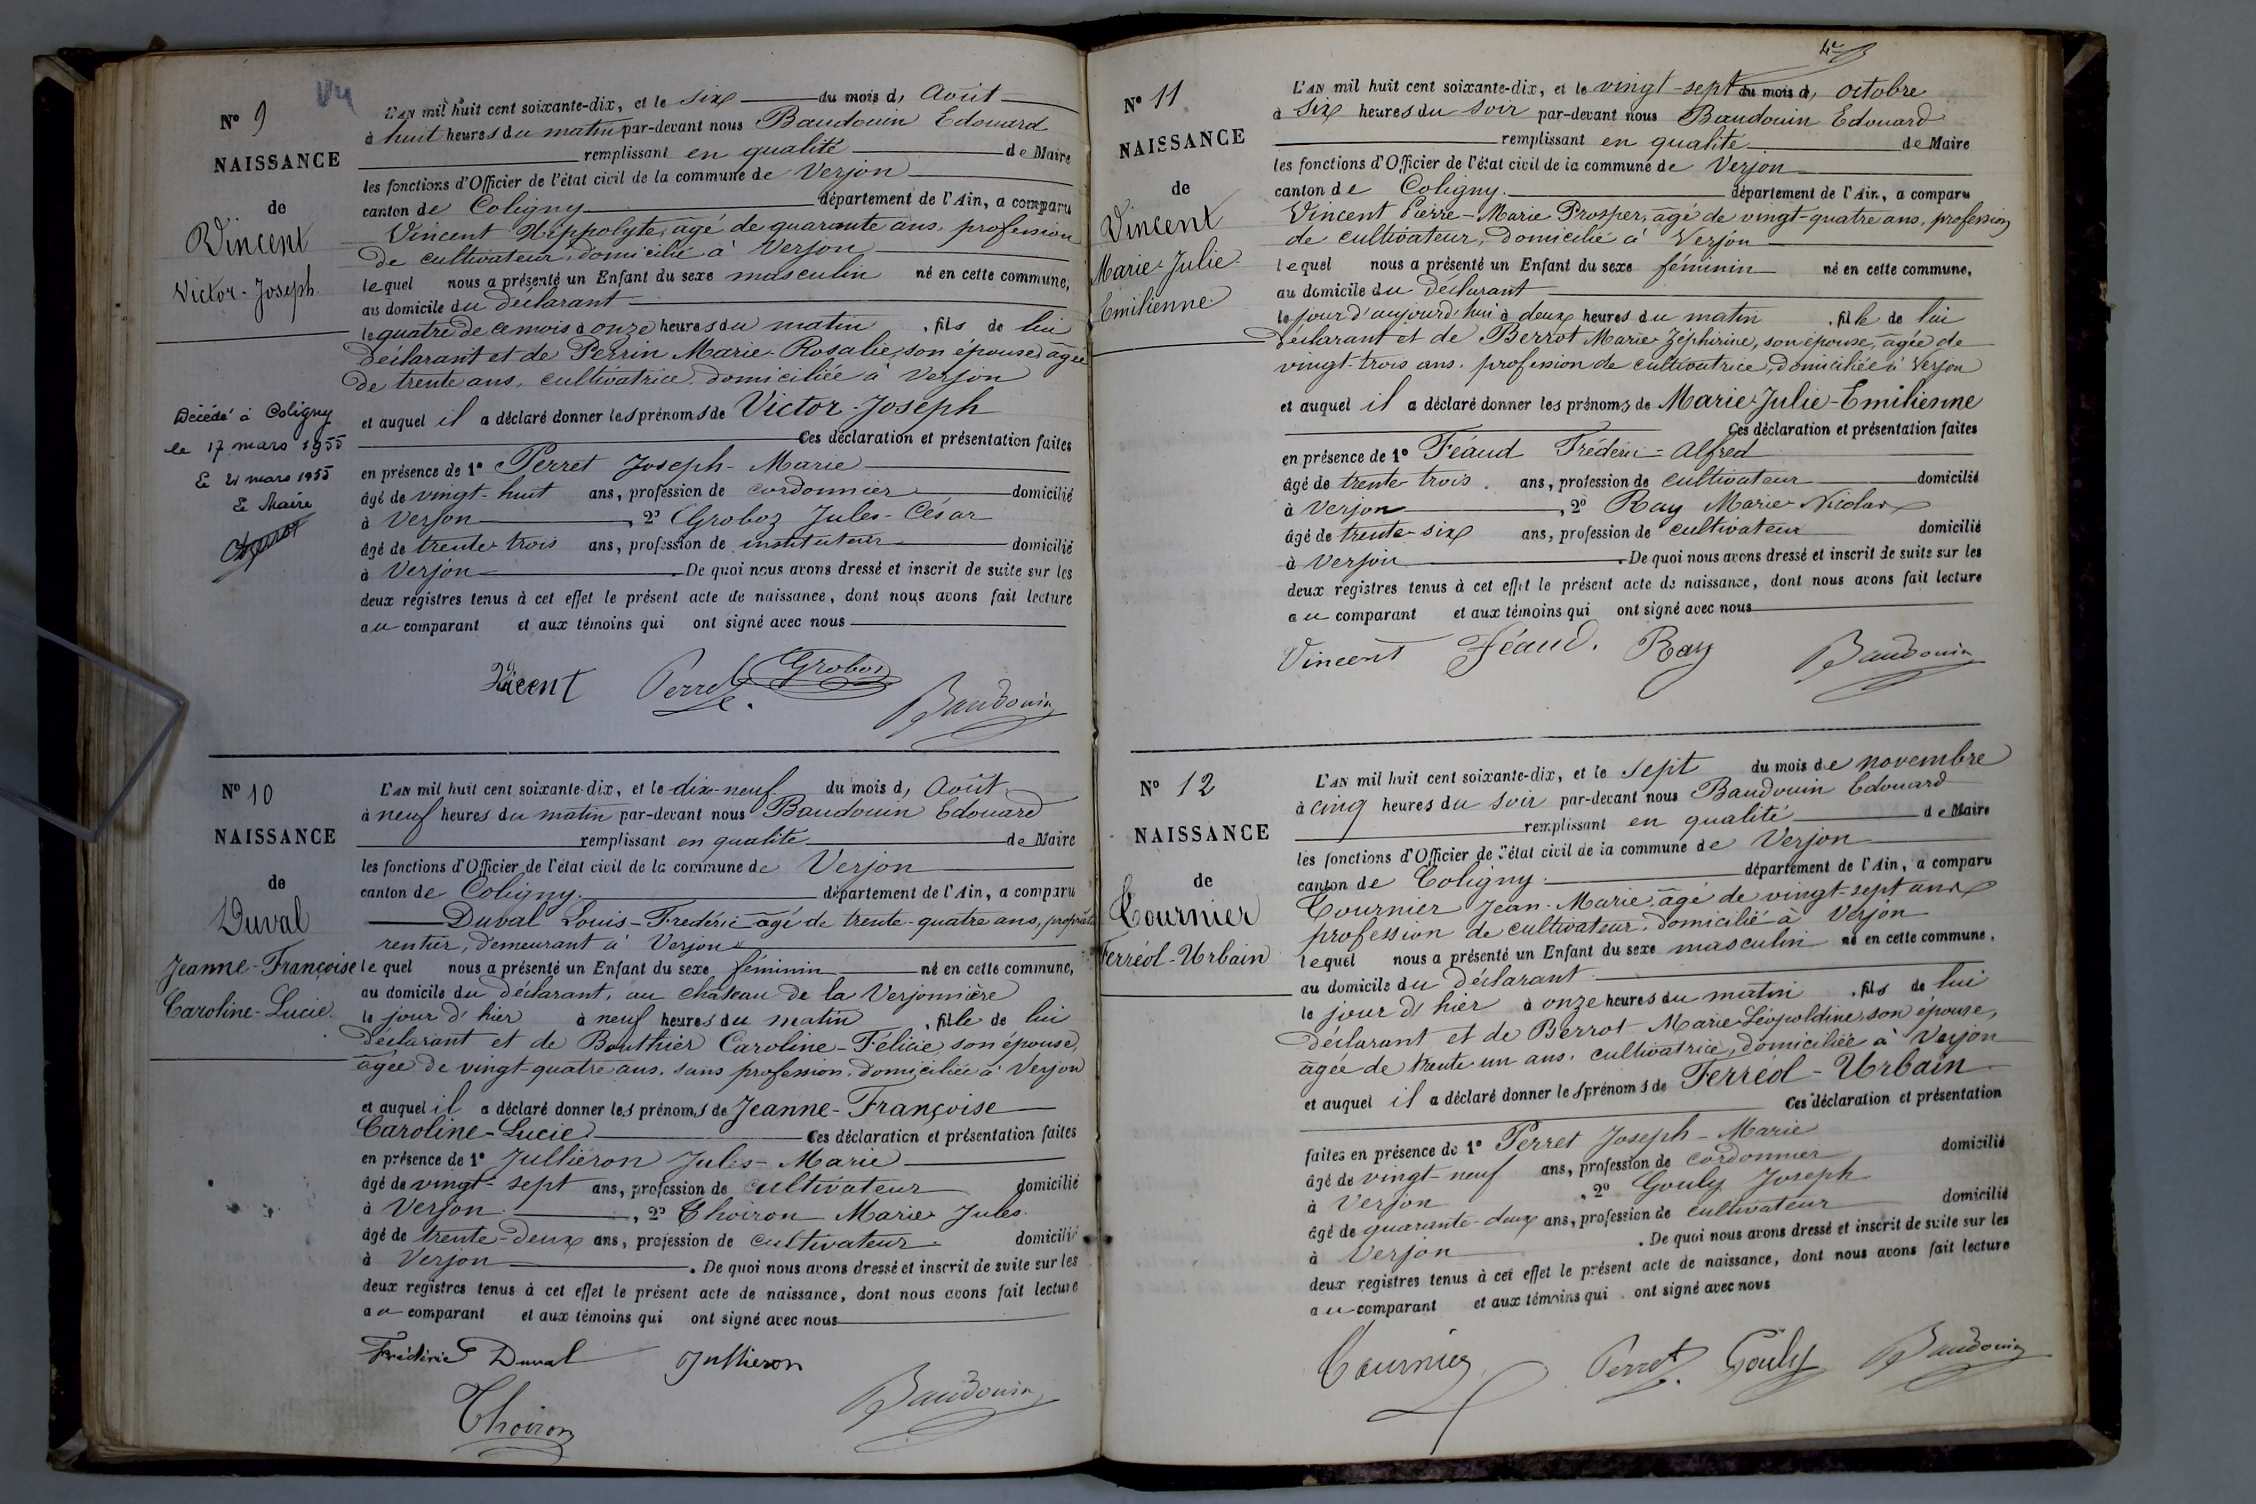 Vu
N° 9
NAISSANCE
de
Vincent
Victor-Joseph
Décédé à Coligny
le 17 mars 1955
Le 21 mars 1955
Le Maire
L'AN mil huit cent soixante-dix, et le six du mois d, Août
à huit heures du matin par-devant nous Baudouin Edouard
remplissant en qualité de Maire
les fonctions d'Officier de l'état civil de la commune de Verjon
canton de Coligny département de l'Ain, a comparu
Vincent Hippolyte, agé de quarante ans, profession
de cultivateur, domicilié à Verjon
lequel nous a présenté un Enfant du sexe masculin né en cette commune,
au domicile du déclarant
le quatre de ce mois à onze heures du matin, fils de lui
Déclarant et de Perrin Marie-Rosalie, son épouse, agée
de trente ans, cultivatrice, domiciliée à Verjon
et auquel il a déclaré donner les prénoms de Victor-Joseph
Ces déclaration et présentation faites
en présence de 1° Perret Joseph-Marie
âgé de vingt-huit ans, profession de cordonnier domicilié
à Verjon, 2° Groboz Jules-César
âgé de trente-trois ans, profession de instituteur domicilié
à Verjon. De quoi nous avons dressé et inscrit de suite sur les
deux registres tenus à cet effet le présent acte de naissance, dont nous avons fait lecture
au comparant et aux témoins qui ont signé avec nous
Vincent Perret Groboz
Baudouin
N° 10
NAISSANCE
de
Duval
Jeanne-Françoise
Caroline-Lucie
L'AN mil huit cent soixante-dix, et le dix-neuf du mois d, Août
à neuf heures du matin par-devant nous Baudouin Edouard
remplissant en qualité de Maire
les fonctions d'Officier de l'état civil de la commune de Verjon
canton de Coligny. département de l'Ain, a comparu
Duval Louis-Frédéric agé de trente-quatre ans, propriét
rentier, demeurant à Verjon
lequel nous a présenté un Enfant du sexe féminin né en cette commune,
au domicile du déclarant, au château de la Verjonnière
le jour d'hier à neuf heures du matin, fille de lui
Déclarant et de Bouthier Caroline-Félicie, son épouse,
agée de vingt-quatre ans, sans profession, domiciliée à Verjon
et auquel il a déclaré donner les prénoms de Jeanne-Françoise
Caroline-Lucie Ces déclaration et présentation faites
en présence de 1° Jullieron Jules-Marie
âgé de vingt-sept ans, profession de cultivateur domicilié
à Verjon, 2° Thoiron Marie Jules
âgé de trente-deux ans, profession de cultivateur domicilié
à Verjon. De quoi nous avons dressé et inscrit de suite sur les
deux registres tenus à cet effet le présent acte de naissance, dont nous avons fait lecture
au comparant et aux témoins qui ont signé avec nous
Frédéric Duval Jullieron
Thoiron Baudouin
4e
N° 11
NAISSANCE
de
Vincent
Marie-Julie
Emilienne
L'AN mil huit cent soixante-dix, et le vingt-sept du mois d, octobre
à six heures du soir par-devant nous Baudouin Edouard
remplissant en qualité de Maire
les fonctions d'Officier de l'état civil de la commune de Verjon
canton de Coligny. département de l'Ain, a comparu
Vincent Pierre-Marie Prosper, agé de vingt-quatre ans, profession
de cultivateur, domicilié à Verjon
lequel nous a présenté un Enfant du sexe féminin né en cette commune,
au domicile du déclarant
le jour d'aujourd'hui à deux heures du matin, fille de lui
Déclarant et de Berrot Marie Zéphirine, son épouse, agée de
vingt-trois ans, profession de cultivatrice, domiciliée à Verjon
et auquel il a déclaré donner les prénoms de Marie-Julie-Emilienne
Ces déclaration et présentation faites
en présence de 1° Féaud Frédéric-Alfred
âgé de trente-trois ans, profession de cultivateur domicilié
à Verjon, 2° Ray Marie-Nicolas
âgé de trente-six ans, profession de cultivateur domicilié
à Verjon. De quoi nous avons dressé et inscrit de suite sur les
deux registres tenus à cet effet le présent acte de naissance, dont nous avons fait lecture
au comparant et aux témoins qui ont signé avec nous
Vincent Féaud. Ray Baudouin
N° 12
NAISSANCE
de
Tournier
Ferréol-Urbain
L'AN mil huit cent soixante-dix, et le sept du mois de novembre
à cinq heures du soir par-devant nous Baudouin Edouard
remplissant en qualité de Maire
les fonctions d'Officier de l'état civil de la commune de Verjon
canton de Coligny. département de l'Ain, a comparu
Tournier Jean-Marie, agé de vingt-sept ans
profession de cultivateur, domicilié à Verjon
lequel nous a présenté un Enfant du sexe masculin né en cette commune,
au domicile du déclarant
le jour d'hier à onze heures du matin, fils de lui
déclarant et de Berrot Marie-Léopoldine, son épouse,
agée de trente un ans, cultivatrice, domiciliée à Verjon
et auquel il a déclaré donner les prénoms de Ferréol-Urbain
Ces déclaration et présentation
faites en présence de 1° Perret Joseph-Marie
âgé de vingt-neuf ans, profession de cordonnier domicilié
à Verjon, 2° Gouly Joseph
âgé de quarante-deux ans, profession de cultivateur domicilié
à Verjon. De quoi nous avons dressé et inscrit de suite sur les
deux registres tenus à cet effet le présent acte de naissance, dont nous avons fait lecture
au comparant et aux témoins qui ont signé avec nous
Tournier Perret Gouly Baudouin